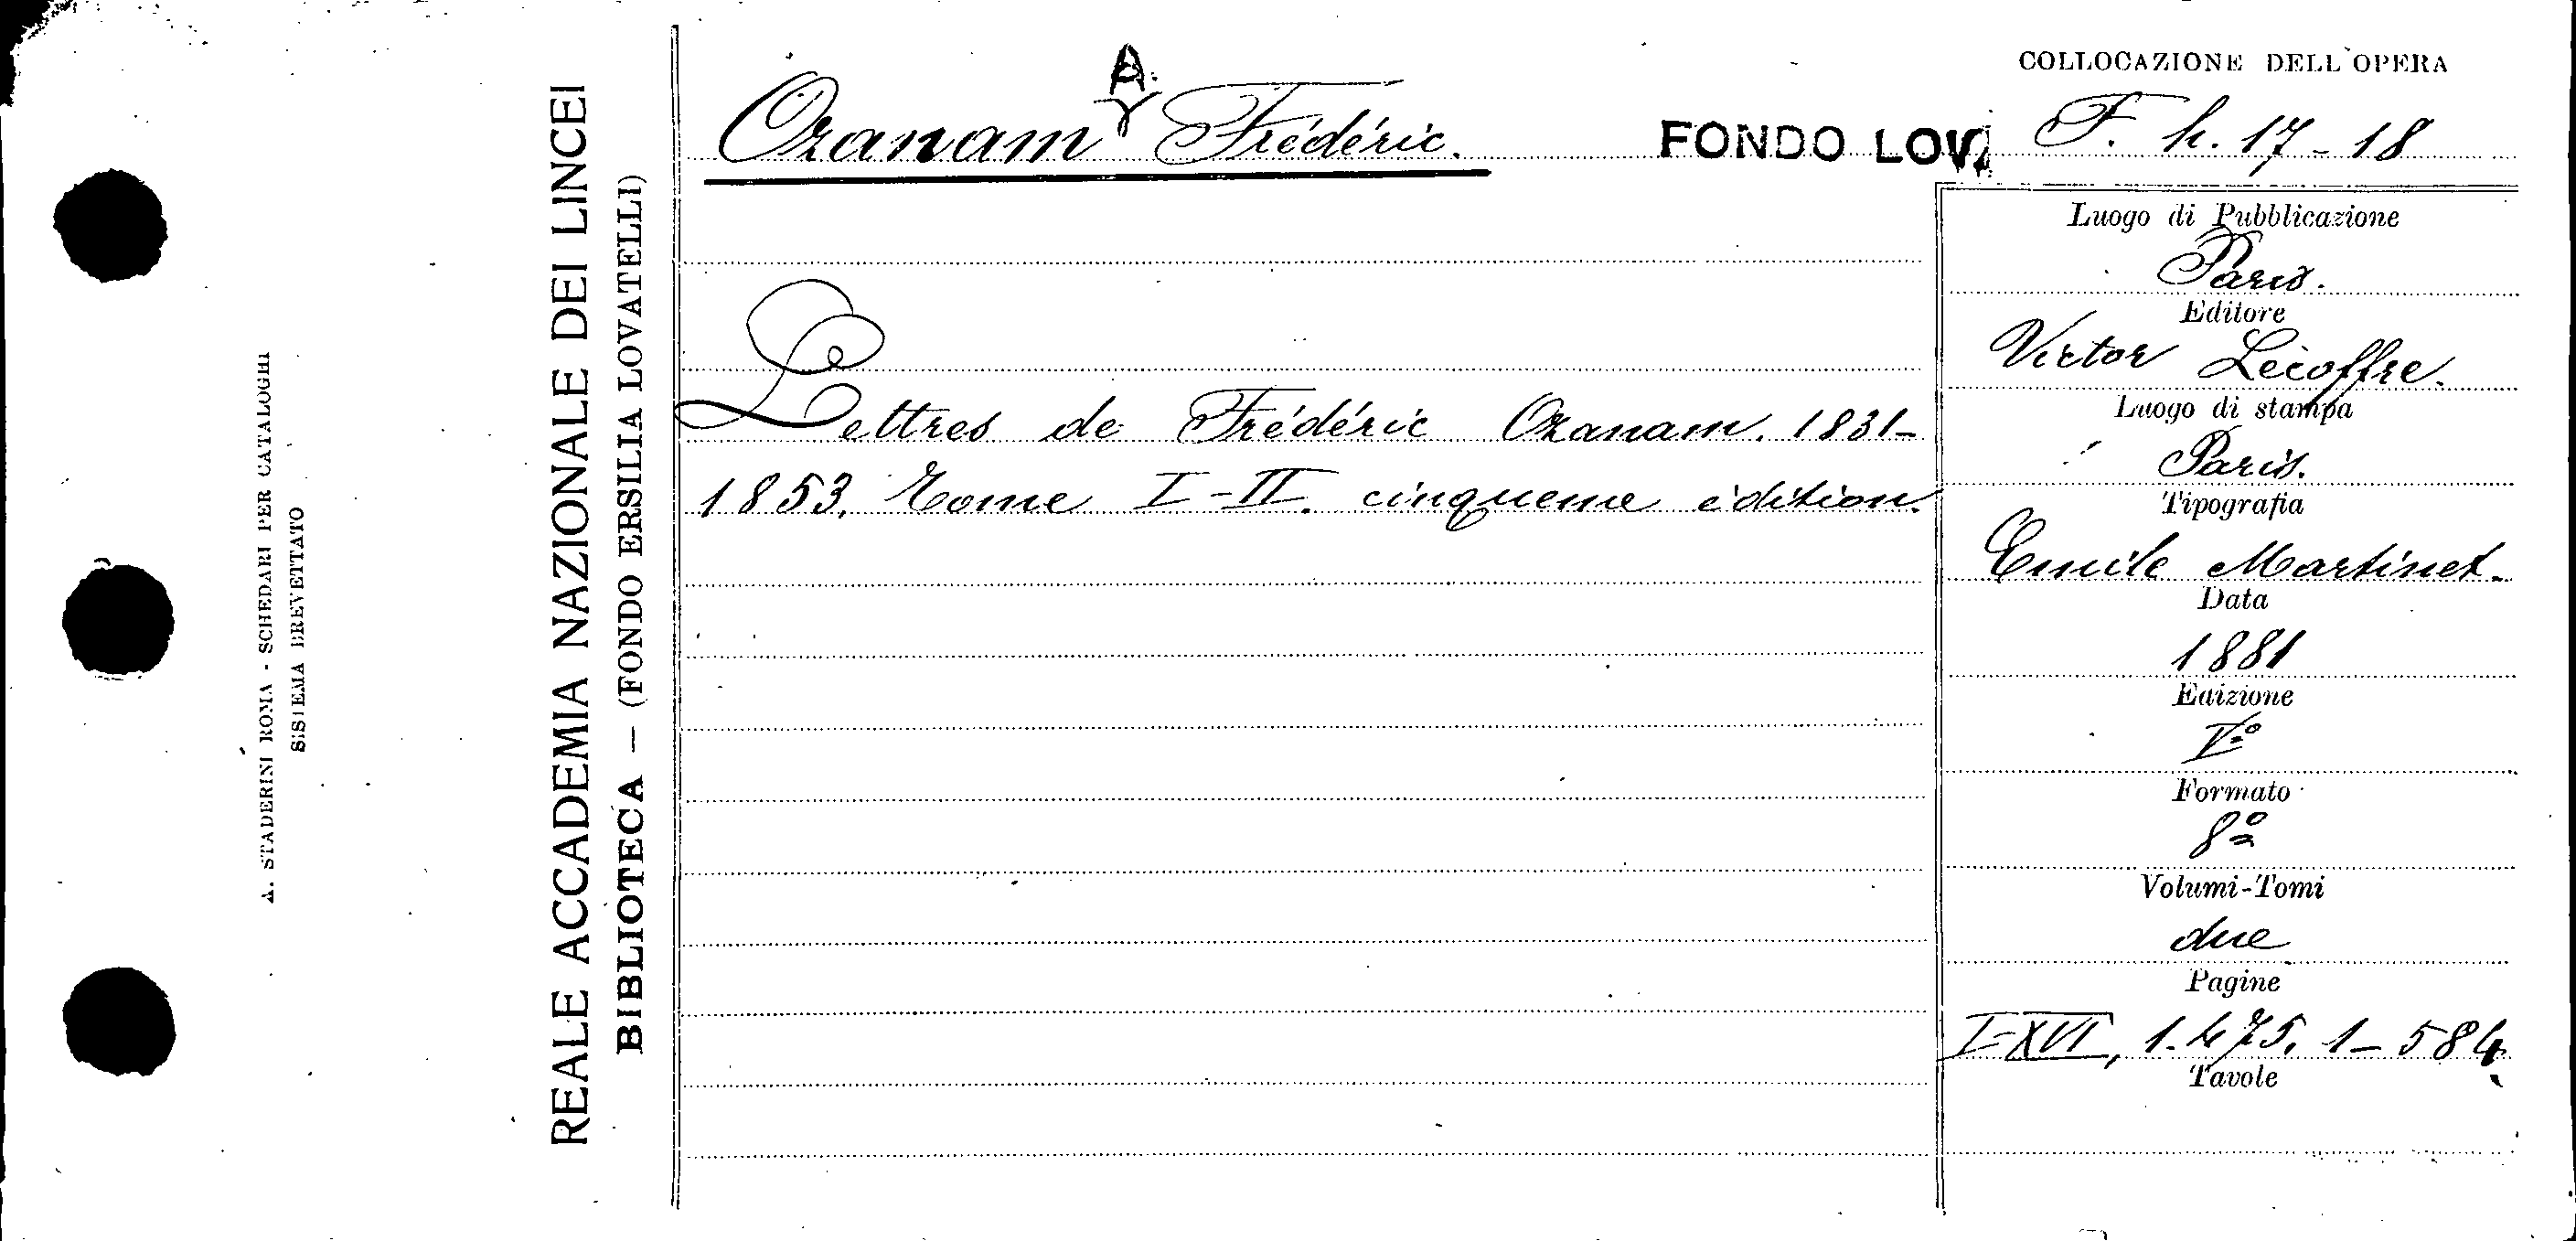 A. STADERINI ROMA - SCHEDARI PER CATALOGHI
SISTEMA BREVETTATO
REALE ACCADEMIA NAZIONALE DEI LINCEI
BIBLIOTECA — (FONDO ERSILIA LOVATELLI)
A.
Ozanam Frédéric.
FONDO LOV.
COLLOCAZIONE DELL'OPERA
F. h. 17-18
Lettres de Frédéric Ozanam. 1831-
1853. Tome I-II. cinqueme édition.
Luogo di Pubblicazione
Paris.
Editore
Victor Lecoffre.
Luogo di stampa
Paris.
Tipografia
Emile Martinet.
Data
1881
Edizione
Vº
Formato
8º
Volumi-Tomi
due
Pagine
I-XVI, 1-475, 1-584
Tavole